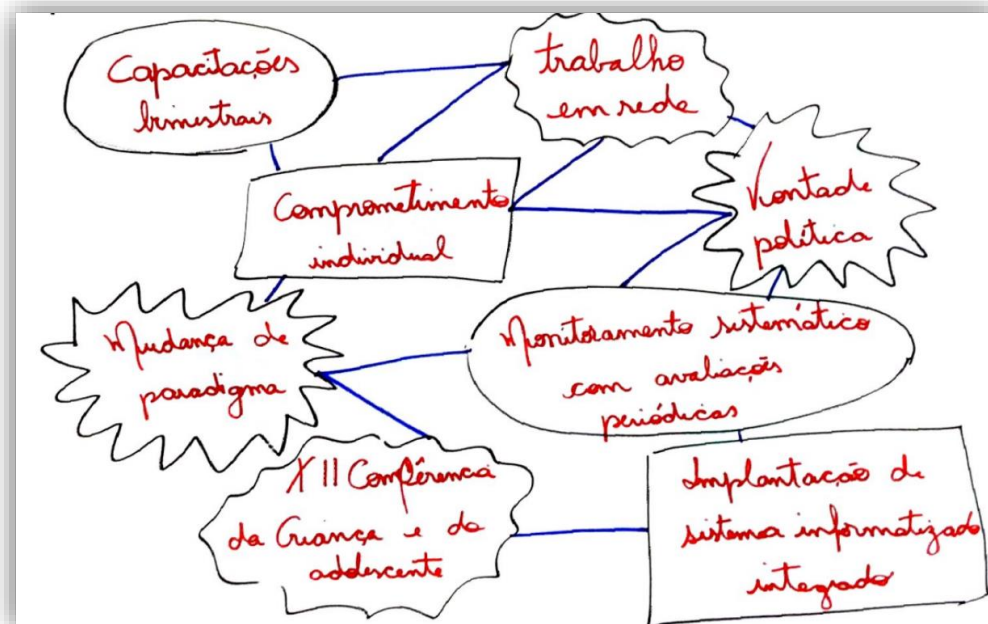 Capacitações
bimestrais
trabalho
em rede
Comprometimento
individual
Vontade
política
Mudança de
paradigma
Monitoramento sistemático
com avaliações
periódicas
XII Conferência
da Criança e do
adolescente
Implantação de
sistema informatizado
integrado